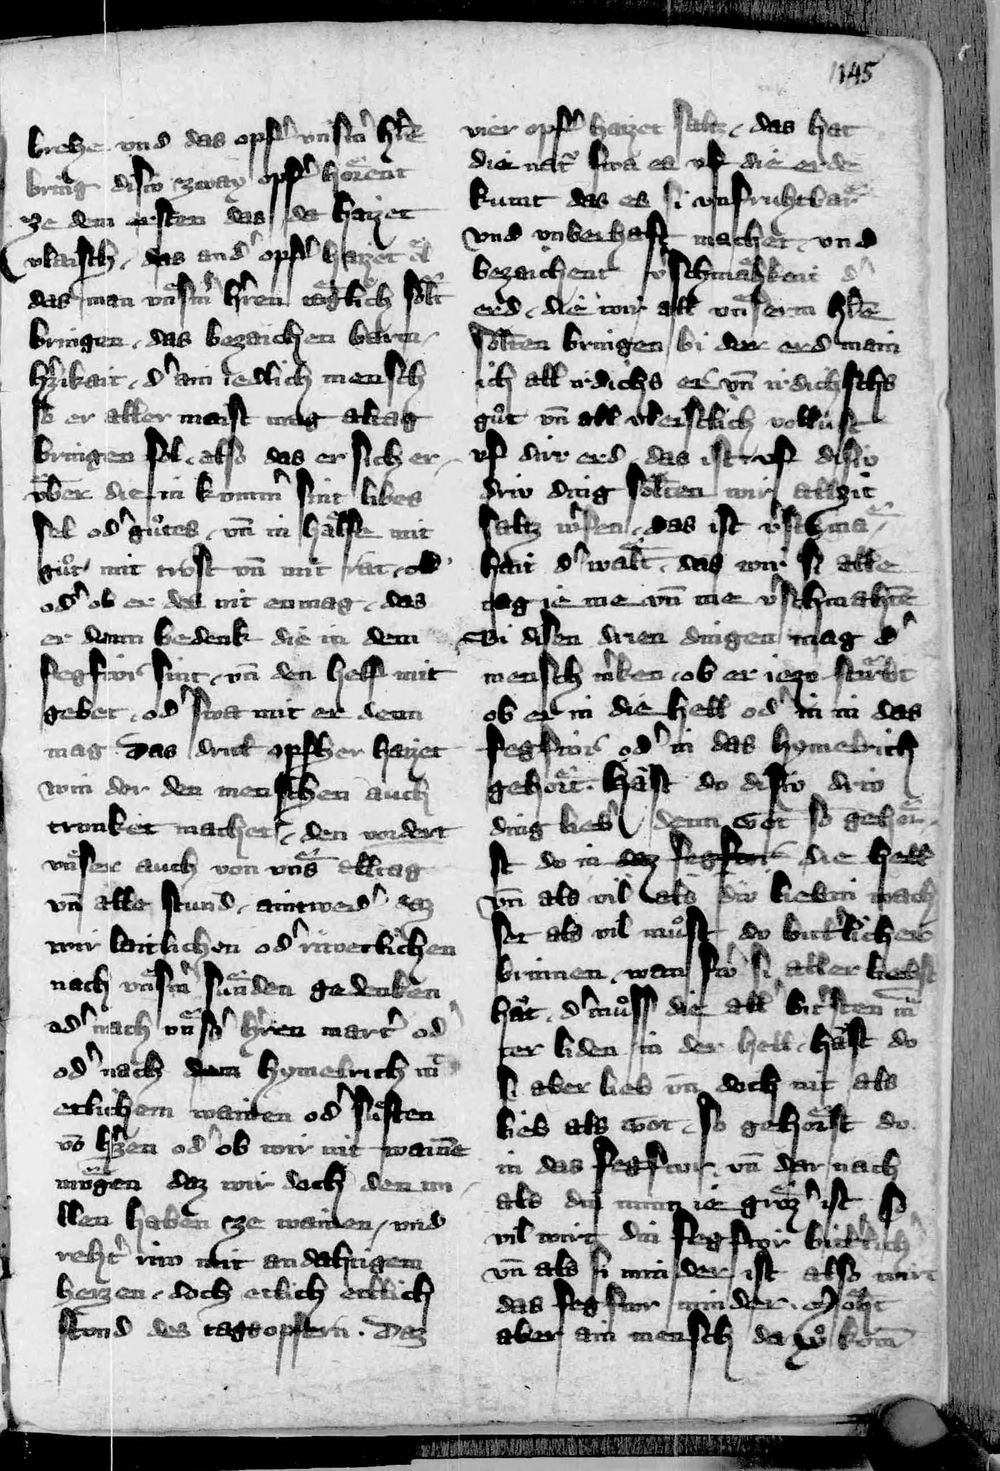 145
brehe vnd das opfˀ vnsm̄ hˀre
bring disiv zway opfˀ hörent
ze dem ersten das da haizet
vlaisch. das andˀ opfˀ haizet öl
das man vnsm̄ hˀren täglich solt
bringen. das bezaichen barm-
hˀzikait. dˀ ain ieclich mensch
so er aller maist mag altag
bringen sol. also das er sich er-
über die in komm̄ sint libes
sel odˀ guͦtes. vn̄ in hälfe mit
guͦt mit trost vn̄ mit rat. ob
odˀ ob er des nit enmag. das
er denn bedenk die in dem
fegfivr sint. vn̄ den helf mit
gebet. odˀ swa mit er denn
mag Das drit opfher haizet
win der den menschen auch
trunket machet. den vordert
vnser auch von vns alltag
vn̄ alle stund. aintwerdˀ daz
wir laitlichen odˀ rüweclichen
nach vnsm̄ sünden gedenken
odˀ nach vnsˀ hˀren martˀ odˀ
odˀ nach dem hymelrich mˀ
etlichem wainen odˀ süften
vō hˀzen odˀ ob wir nit wainē
mügen daz wir doch den wi-
llen haben ze wainen. vnd
rehtˀ riw mit andahtigem
herzen. doch etlich etlich
stund des tags opfern. Daz
vier opfˀ haizet saltz. das hat
die natˀ swa es vf die erde
kumt das es si vnfruhtbär
vnd vnberhaft machet. vnd
bezaichent vˀschmähkeit dˀ
erd. die wir all vnserm hˀre
solten bringen bi der erd main
ich all irdichs er vn̄ irdichschs
guͦt vn̄ all vleischlich vollust
vf dirr erd. das ist vf disiv
driv ding solten wir allzit
saltz wˀfen. das ist vˀschmä-
hait dˀ welt. das wir si alle
tag ie me vn̄ me vˀschmahtē
Bi disen drien dingen mag dˀ
mensch mˀken. ob er iezo stürbt
ob er in die hell odˀ in in das
fegfivr odˀ in das hymelrich
gehört. Häst do disiv driv
ding liebˀ denn Got so gehör-
st do in daz fegfivr die hell
vn̄ als vil als div liebin mach
ser als vil muͦst do bitˀlicher
brinnen. wan swˀ si aller liebst
hat. dˀ muͦss die all bitˀsten m̄
ter liden in der hell. häst do
si aber lieb vn̄ doch nit als
lieb als Got. so gehörst do
in das fegfivr. vn̄ dar nach
als din minn ie grözˀ ist so
vil wirt din fegfivr bitˀlichˀ
vn̄ als si minder ist also wirt
das fegfivr minder. Moht
aber ain mensch da zuͦ kom̄